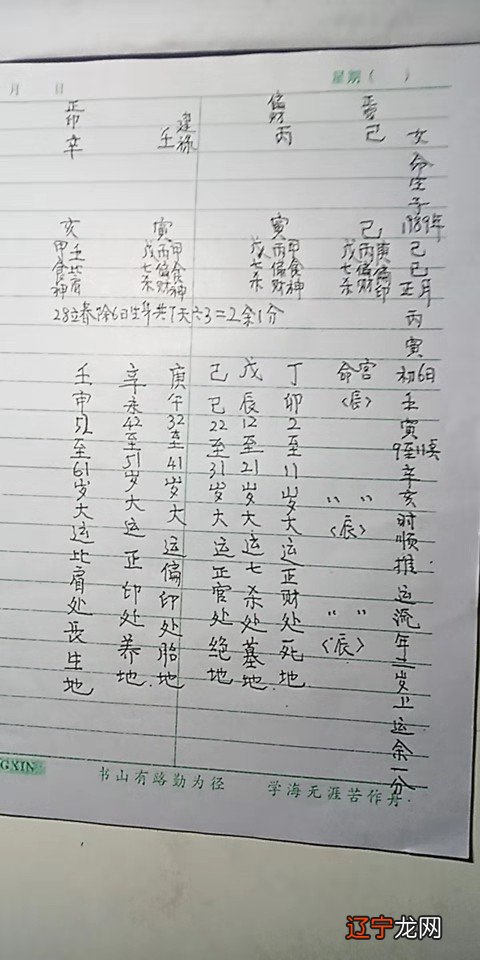 月 日
星期( )
亥命生于1989年己巳正月丙寅初6日壬寅9至11点辛亥时顺推运流年二岁上运余一分
己
己
庚偏印
丙偏财
戊七杀
命宫〈辰〉
〃 〃〈辰〉
〃 〃〈辰〉
偏财
丙
寅
甲食神
丙偏财
戊七杀
建禄
壬
寅
甲食神
丙偏财
戊七杀
正印
辛
亥
壬比肩
甲食神
28立春除6日生年共7天六3=2余1分
丁卯2至11岁大运正财处死地.
戊辰12至21岁大运七杀处墓地.
己巳22至31岁大运正官处绝地
庚午32至41岁大运偏印处胎地
辛未42至51岁大运正印处养地.
壬申52至61岁大运比肩处長生地
GXIN
书山有路勤为径 学海无涯苦作舟
辽宁龙网